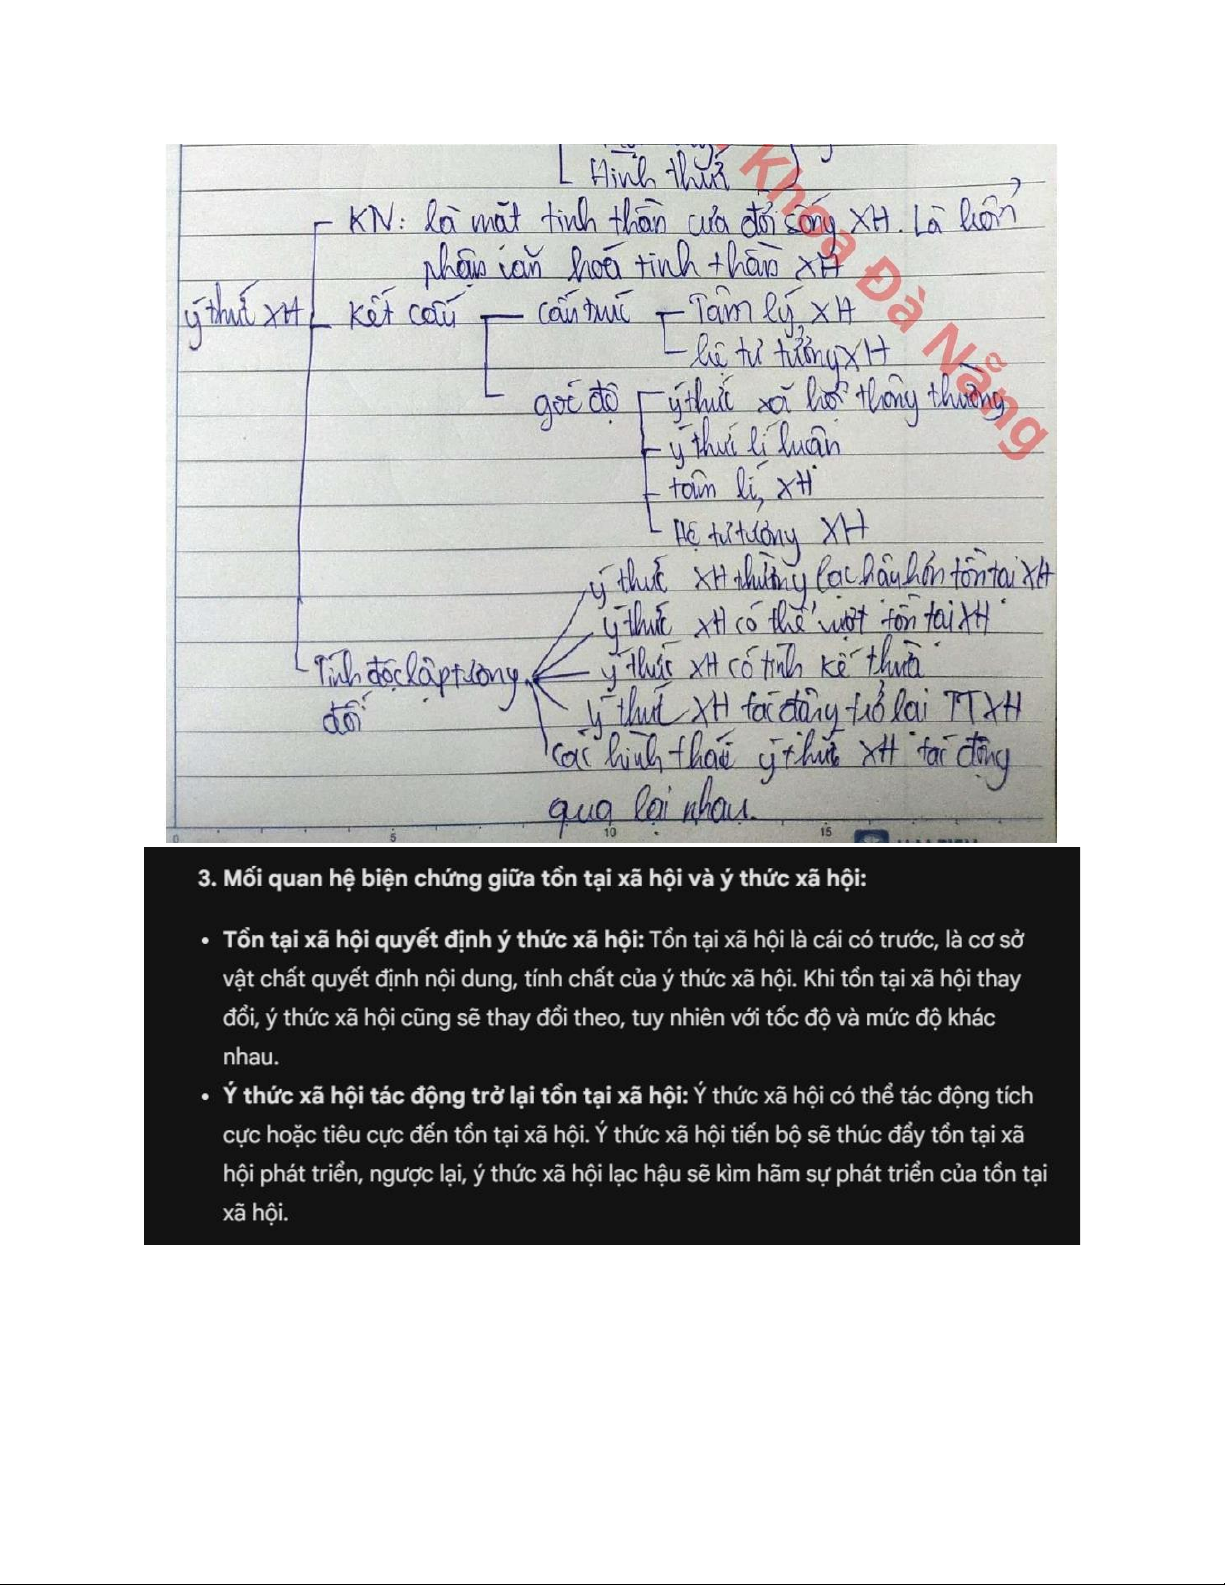 Hình thức
KN: là mặt tinh thần của đời sống XH. Là
phận văn hoá tinh thần XH
ý thức XH
Kết cấu
cấu trúc
Tâm lý XH
hệ tư tưởng XH
góc độ
ý thức xã hội thông thường
ý thức lí luận
tâm lí XH
Hệ tư tưởng XH
ý thức XH thường lạc hậu hơn tồn tại XH
ý thức XH có thể vượt tồn tại XH
ý thức XH có tính kế thừa
Tính độc lập tương
đối
ý thức XH tác động trở lại TTXH
Các hình thái ý thức XH tác động
qua lại nhau.
0 5 10 15
Khoa Đà Nẵng
3. Mối quan hệ biện chứng giữa tồn tại xã hội và ý thức xã hội:
• Tồn tại xã hội quyết định ý thức xã hội: Tồn tại xã hội là cái có trước, là cơ sở
vật chất quyết định nội dung, tính chất của ý thức xã hội. Khi tồn tại xã hội thay
đổi, ý thức xã hội cũng sẽ thay đổi theo, tuy nhiên với tốc độ và mức độ khác
nhau.
• Ý thức xã hội tác động trở lại tồn tại xã hội: Ý thức xã hội có thể tác động tích
cực hoặc tiêu cực đến tồn tại xã hội. Ý thức xã hội tiến bộ sẽ thúc đẩy tồn tại xã
hội phát triển, ngược lại, ý thức xã hội lạc hậu sẽ kìm hãm sự phát triển của tồn tại
xã hội.